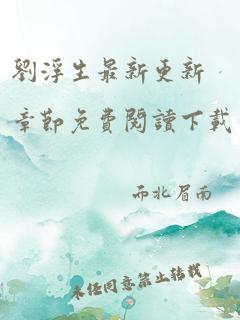 劉浮生最新更新
章節免費閱讀下載
而北眉南
未经同意禁止转载